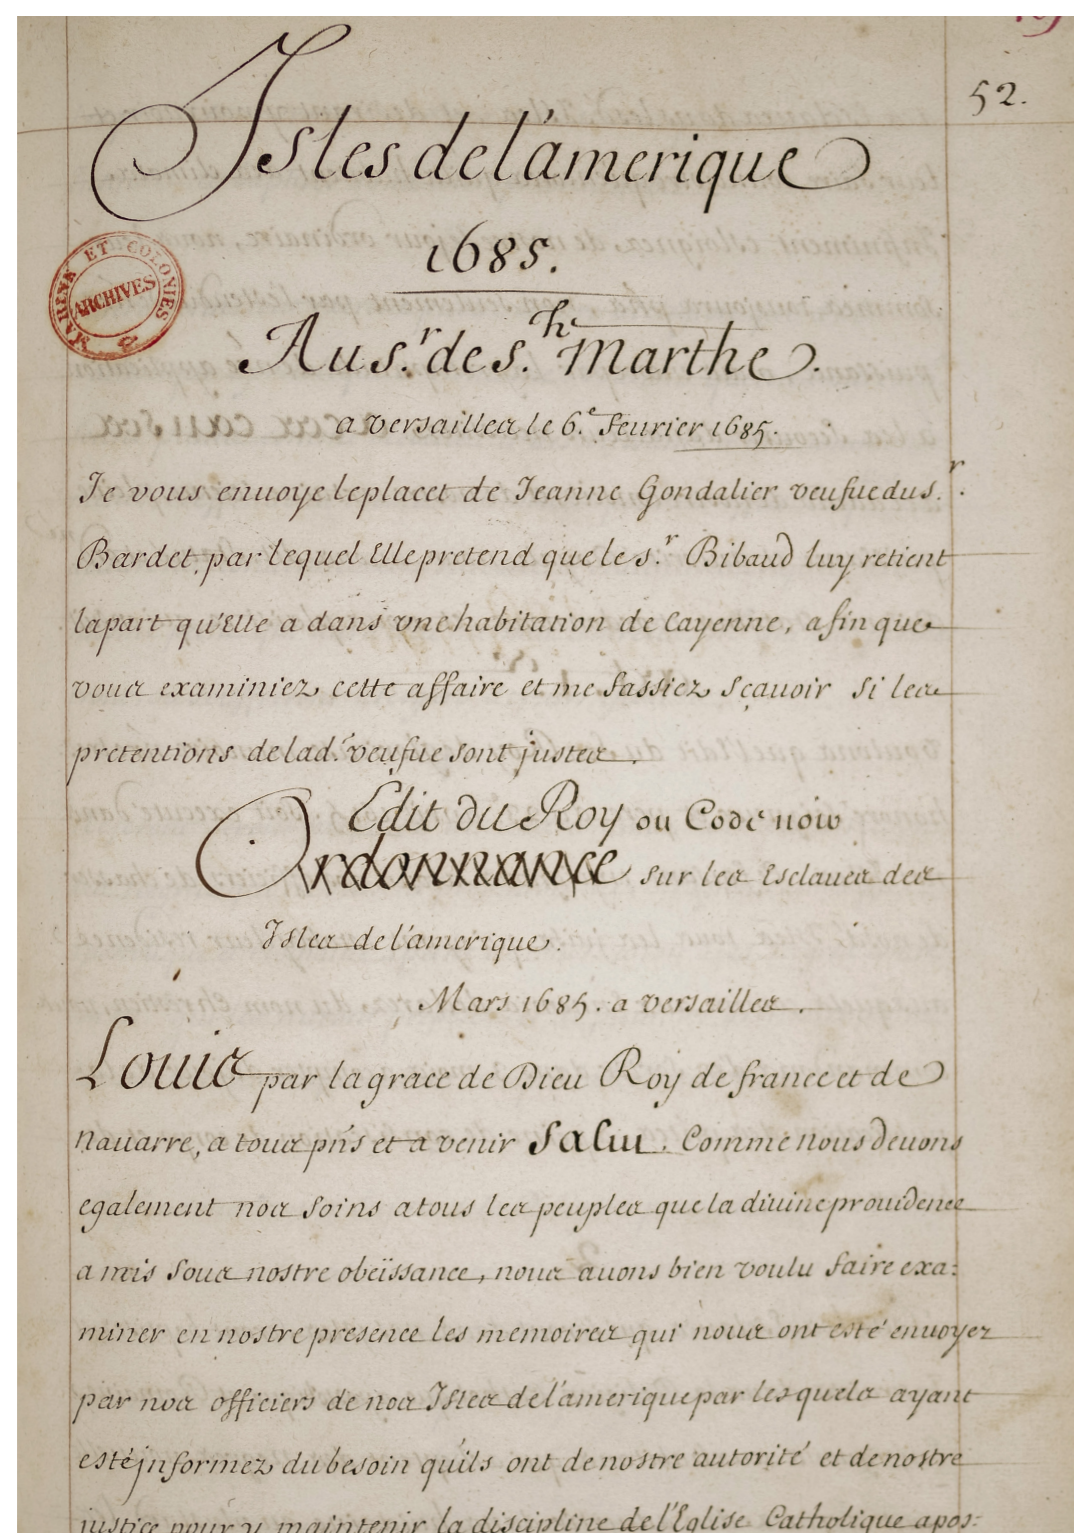 52.
Isles de l'amerique
1685.
MARINE ET COLONIES
ARCHIVES
Au s.r de s.th Marthe.
a versailles le 6.e feurier 1685.
Je vous enuoye le placet de Jeanne Gondalier veufue du s.r
Bardet, par lequel Elle pretend que le s.r Bibaud luy retient
la part qu'Elle a dans vne habitation de Cayenne, afin que
vous examiniez cette affaire et me fassiez sçauoir si les
pretentions de lad. veufue sont justes.
Edit du Roy ou Code noir
Ordonnance sur les Esclaues des
Isles de l'amerique.
Mars 1685. a versailles.
Louis par la grace de Dieu Roy de france et de
Nauarre, a tous pñs et a venir Salut. Comme nous deuons
egalement nos soins a tous les peuples que la diuine prouidence
a mis sous nostre obeïssance, nous auons bien voulu faire exa:
miner en nostre presence les memoires qui nous ont esté enuoyez
par nos officiers de nos Isles de l'amerique par lesquels ayant
esté jnformez du besoin qu'ils ont de nostre autorité et de nostre
justice pour y maintenir la discipline de l'Eglise Catholique apos: